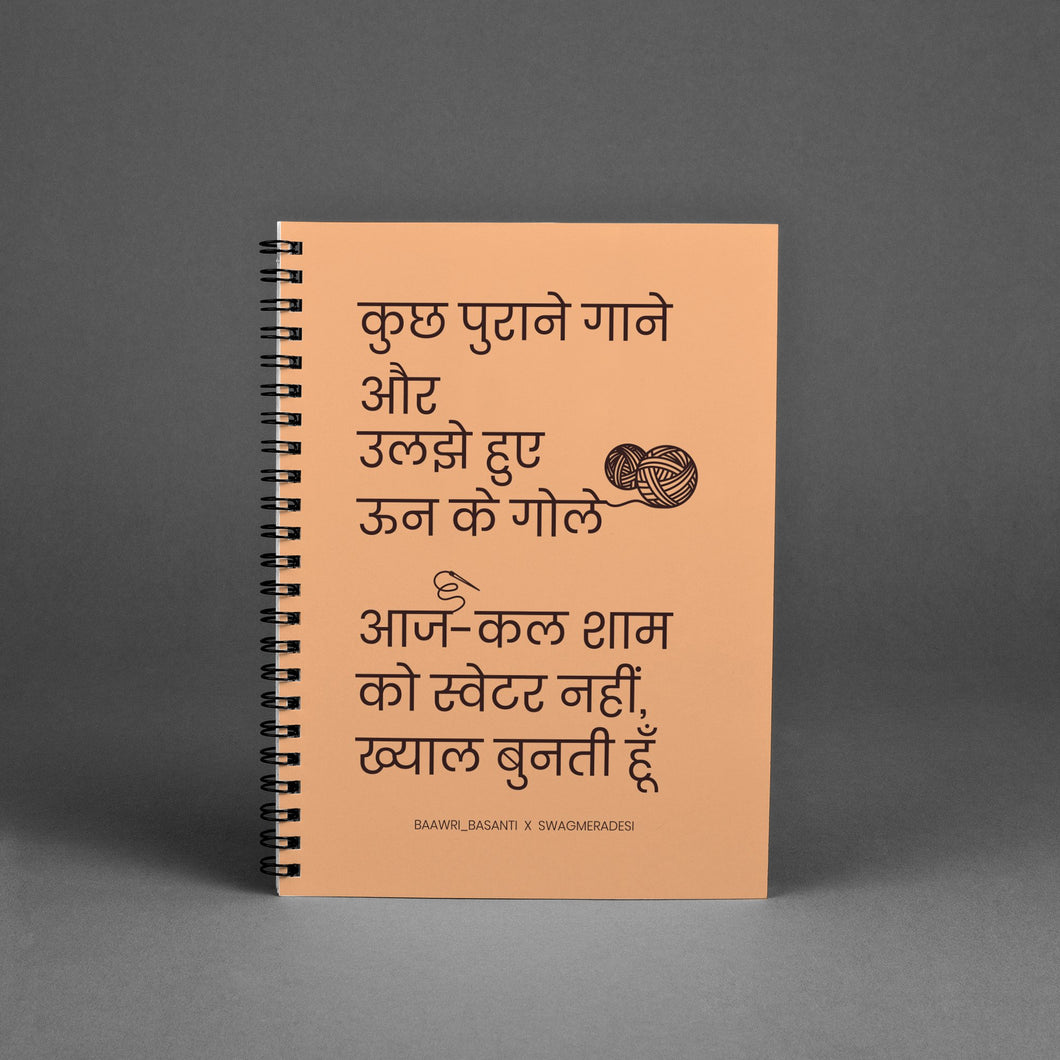 कुछ पुराने गाने
और
उलझे हुए
ऊन के गोले
आज-कल शाम
को स्वेटर नहीं,
ख्याल बुनती हूँ
BAAWRI_BASANTI X SWAGMERADESI